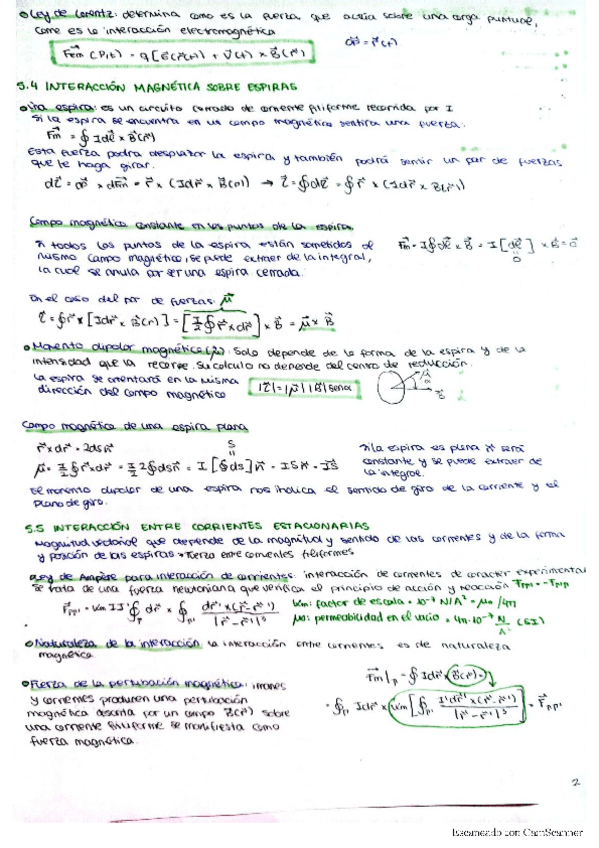 Ley de Lorentz: determina como es la fuerza que actúa sobre una carga puntual,
como es la interacción electromagnética
OP = r(t)
Fem (P,t) = q[E(r,t) + v(t) x B(r)]
5.4 INTERACCIÓN MAGNÉTICA SOBRE ESPIRAS
Una espira: es un circuito cerrado de corriente filiforme recorrida por I
Si la espira se encuentra en un campo magnético sentirá una fuerza:
Fm = ∮ Idl x B(r)
Esta fuerza podrá desplazar la espira y también podrá sentir un par de fuerzas
que le haga girar.
dτ = OP x dFm = r x (Idr x B(r)) → τ = ∮dτ = ∮ r x (Idr x B(r))
Campo magnético constante en los puntos de la espira
Si todos los puntos de la espira están sometidos al
mismo campo magnético, se puede extraer de la integral,
la cual se anula por ser una espira cerrada.
Fm = I∮dl x B = I[∮dl] x B = 0
0
En el caso del par de fuerzas: μ
τ = ∮r x [Idr x B(r)] = [I/2 ∮ r x dr] x B = μ x B
Momento dipolar magnético (μ): Solo depende de la forma de la espira y de la
intensidad que la recorre. Su cálculo no depende del centro de reducción.
La espira se orientará en la misma
dirección del campo magnético
|τ| = |μ| |B| senα
Campo magnético de una espira plana
r x dr = 2ds n
S
μ = I/2 ∮ r x dr = I/2 2∮ds n = I [∮ds] n = IS n = IS
Si la espira es plana n será
constante y se puede extraer de
la integral.
El momento dipolar de una espira nos indica el sentido de giro de la corriente y el
plano de giro.
5.5 INTERACCIÓN ENTRE CORRIENTES ESTACIONARIAS
Magnitud vectorial que depende de la magnitud y sentido de las corrientes y de la forma
y posición de las espiras → Fuerza entre corrientes filiformes
Ley de Ampère para interacción de corrientes: interacción de corrientes de carácter experimental
Se trata de una fuerza newtoniana que verifica el principio de acción y reacción Fpp' = -Fp'p
Fpp' = Km II' ∮p dr x ∮p' dr' x (r - r') / |r - r'|³
Km: factor de escala = 10⁻⁷ N/A² = μ₀/4π
μ₀: permeabilidad en el vacío = 4π·10⁻⁷ N/A² (SI)
Naturaleza de la interacción: la interacción entre corrientes es de naturaleza
magnética
Fuerza de la perturbación magnética: imanes
y corrientes producen una perturbación
magnética descrita por un campo B(r) sobre
una corriente filiforme se manifiesta como
fuerza magnética.
Fm|p = ∮ Idr x B(r) =
= ∮p Idr x [Km ∮p' I'dr' x (r - r') / |r - r'|³] = Fpp'
2
Escaneado con CamScanner